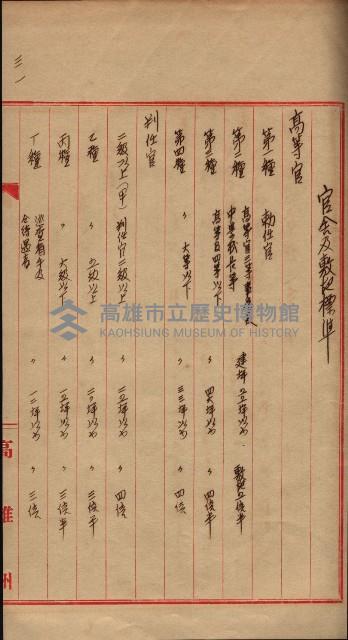 官舍及敷地標準
高等官
第一種 勅任官
第二種 高等官三等 建坪 五五坪以內 敷地 五倍半
中學校長等
第三種 高等官四等以下 〃 四六坪以內 〃 四倍半
第四種 〃 六等以下 〃 三三坪以內 〃 四倍
判任官
二級以上(甲) 判任官二級以上 〃 二五坪以內 〃 四倍
乙種 〃 五級以上 〃 二〇坪以內 〃 三倍半
丙種 〃 六級以下 〃 一五坪以內 〃 三倍半
丁種 巡查 〃 一二坪以內 〃 三倍
高雄州
三一
高雄市立歷史博物館
KAOHSIUNG MUSEUM OF HISTORY